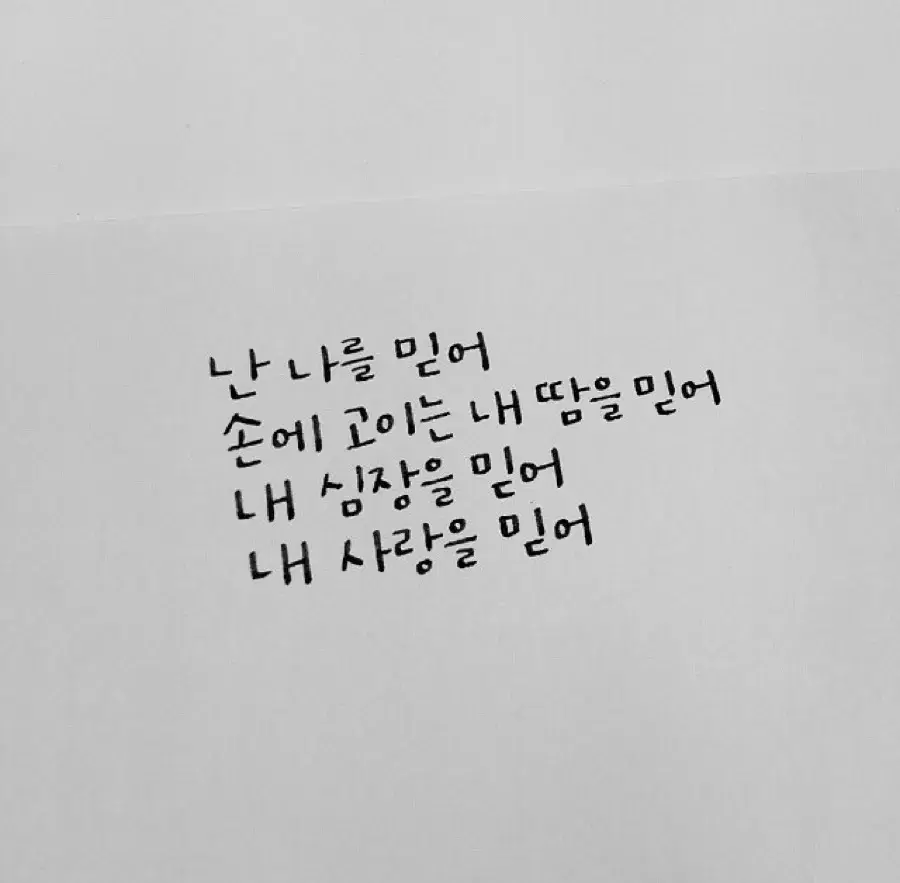 난 나를 믿어
손에 고이는 내 땀을 믿어
내 심장을 믿어
내 사랑을 믿어